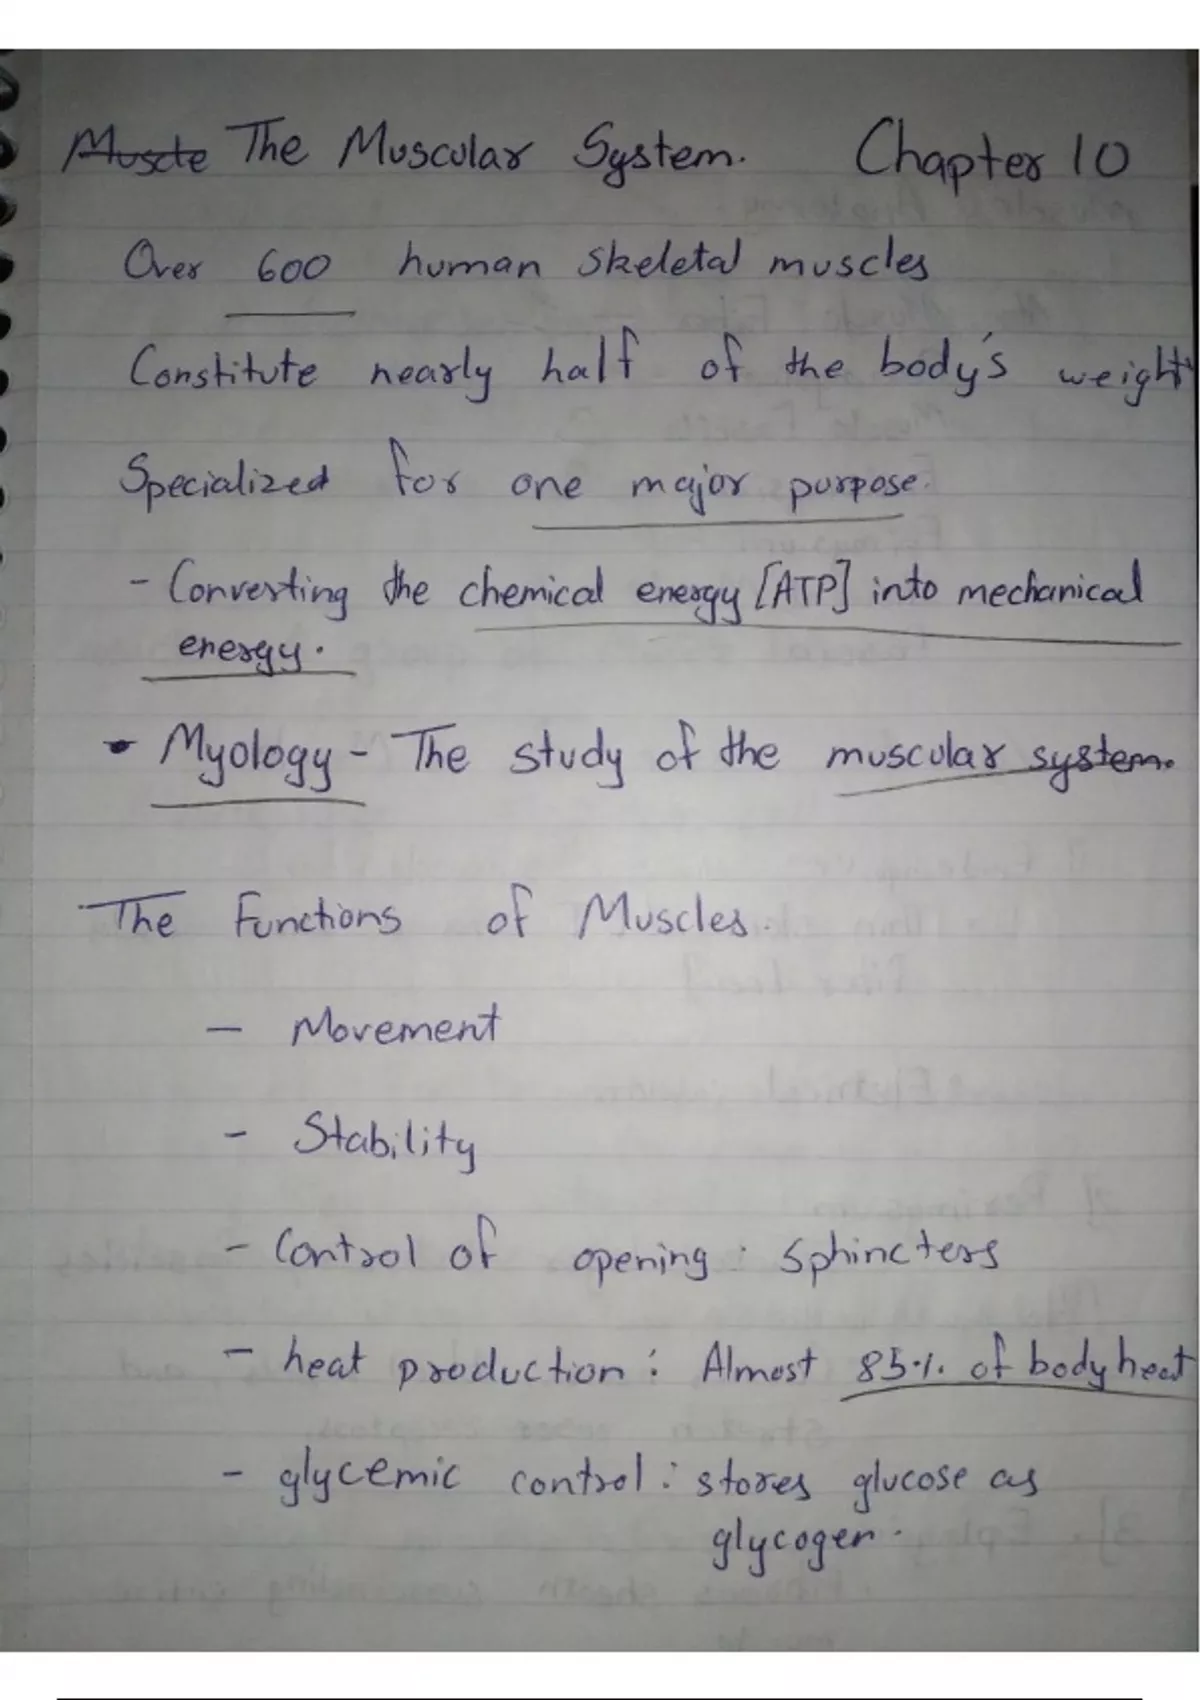 Muscle The Muscular System. Chapter 10
Over 600 human skeletal muscles
Constitute nearly half of the body's weight
Specialized for one major purpose.
- Converting the chemical energy [ATP] into mechanical
energy.
• Myology - The study of the muscular system.
The Functions of Muscles.
- Movement
- Stability
- Control of opening : Sphincters
- heat production : Almost 85% of body heat
- glycemic control : stores glucose as
glycogen.